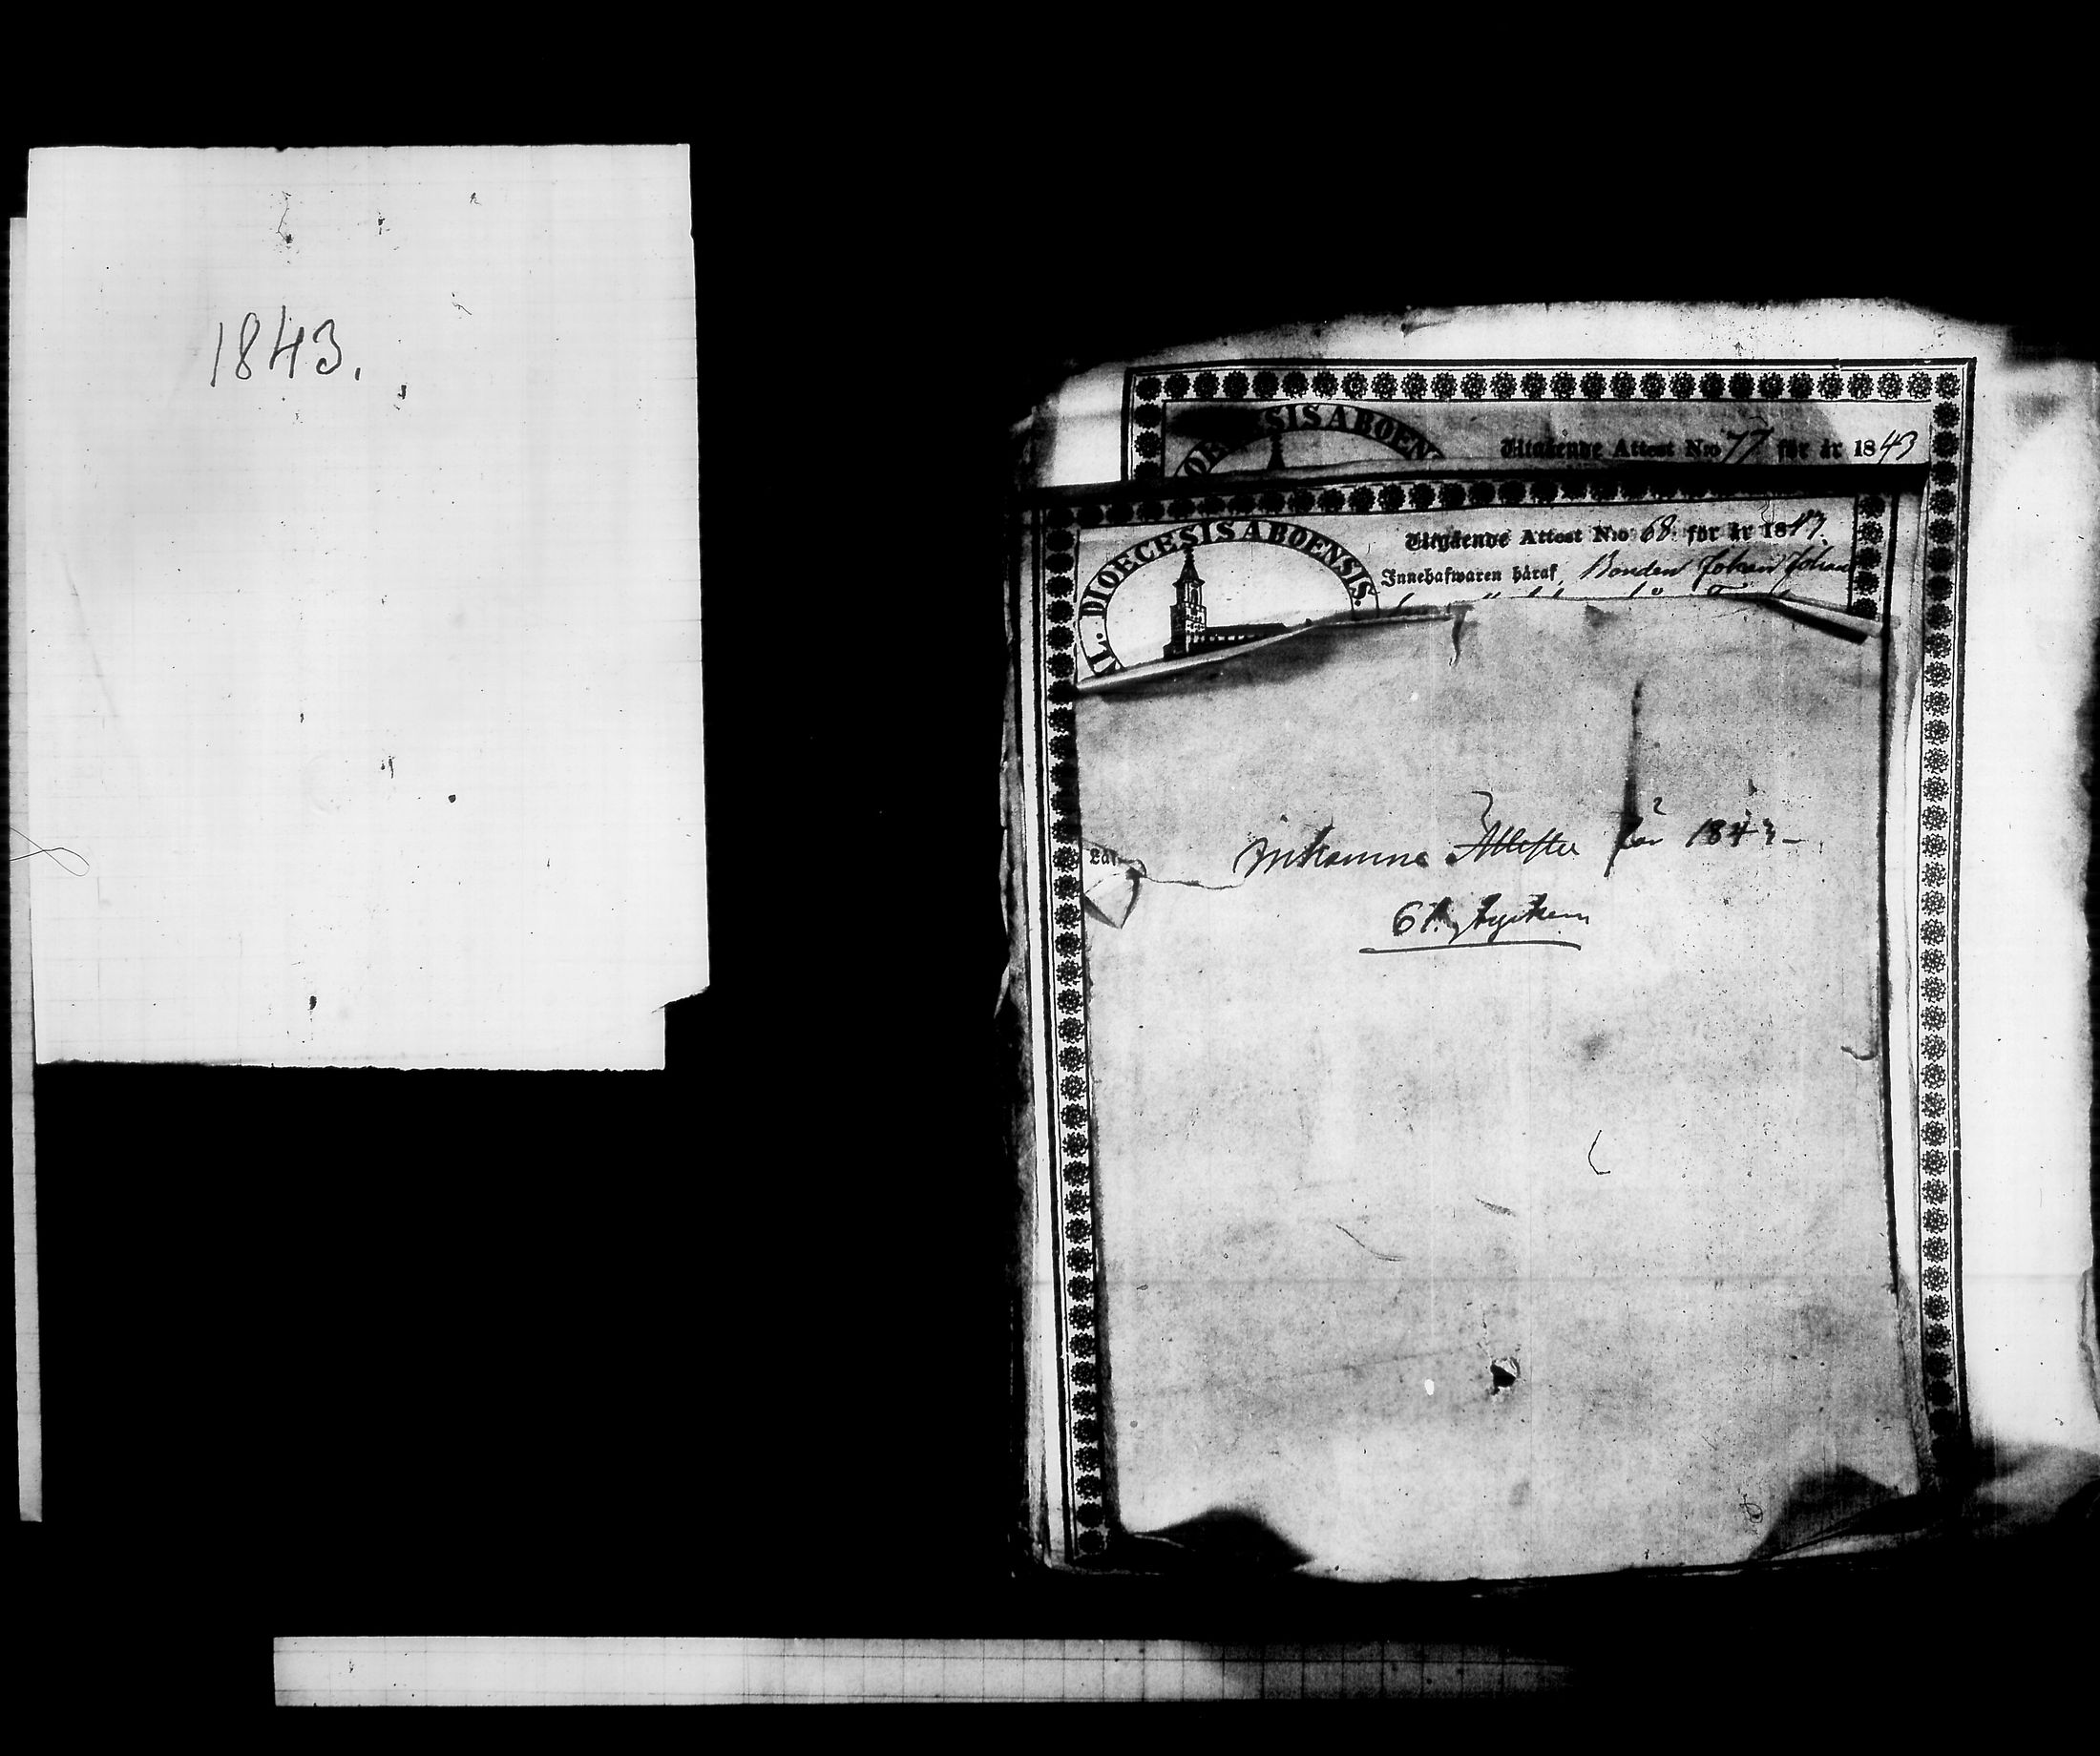 1843.
DIOECESIS ABOEN
Utgående Attest N:o 77 för år 1843
DIOECESIS ABOENSIS.
Utgående Attest N:o 68 för år 1843.
Innehafwaren häraf, Bonden Johan Johan
inkomne Attester för 1843
stycken